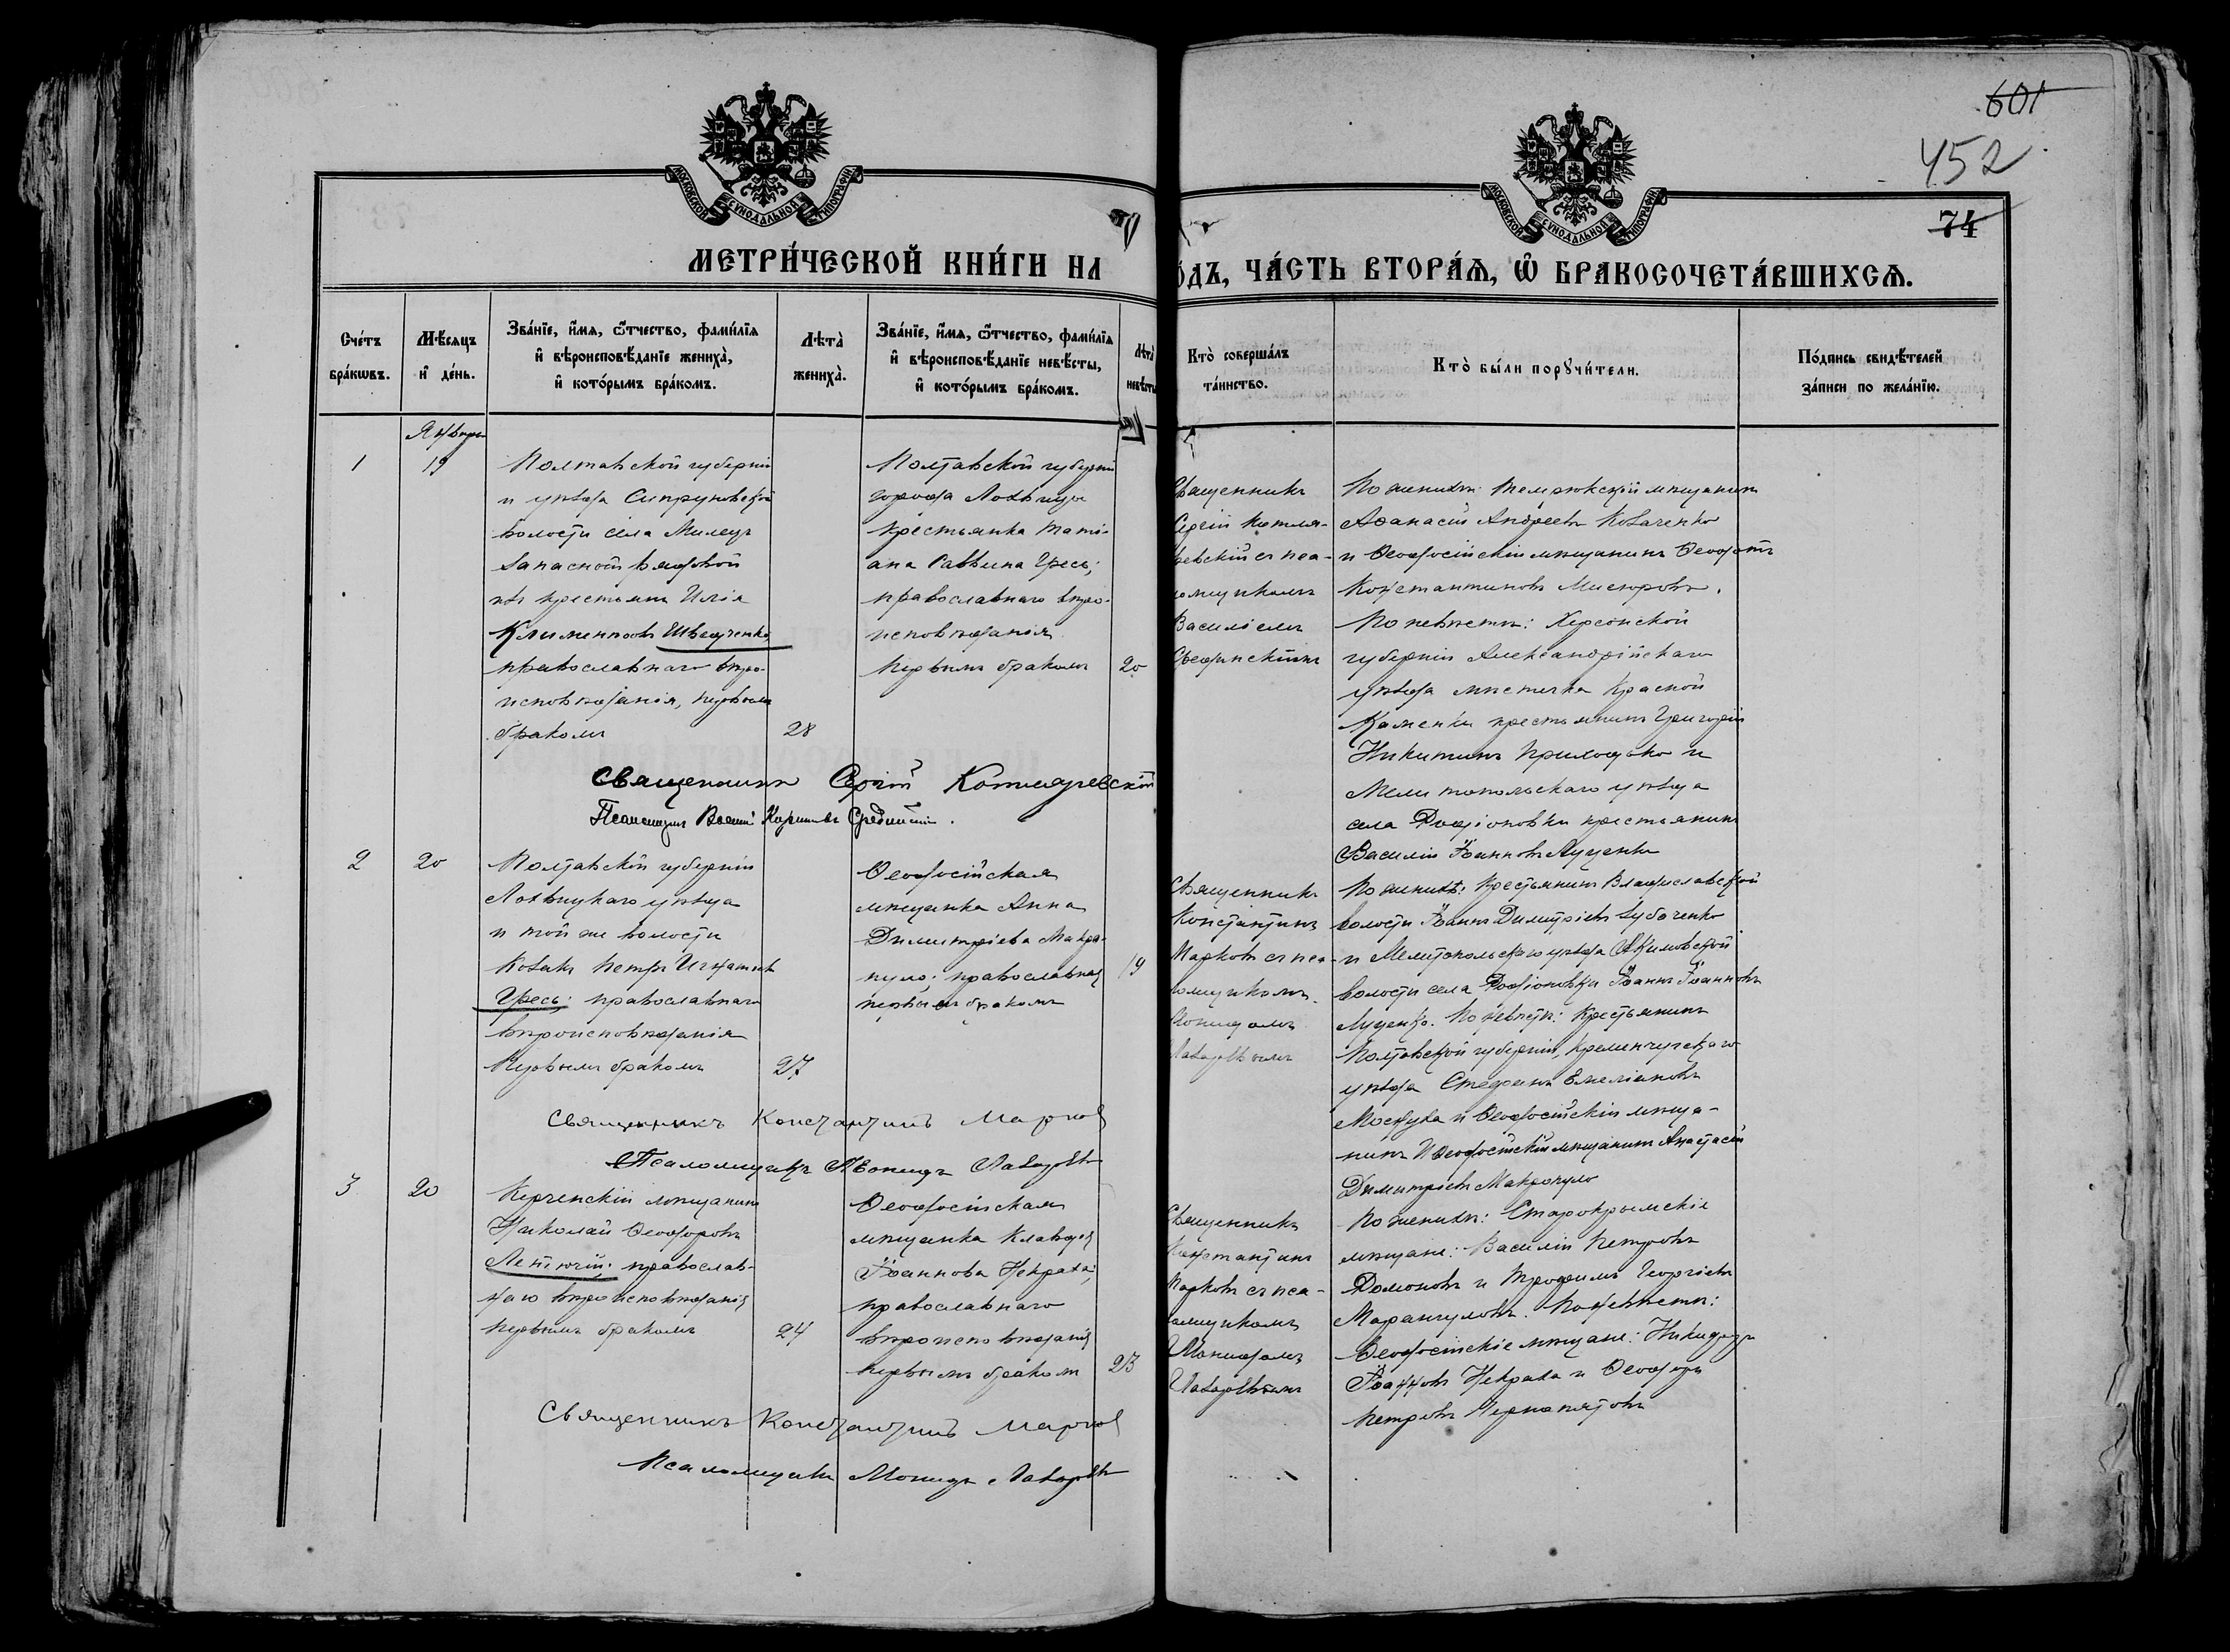 601
452
74
МОСКОВСКОЙ СѴНОДАЛЬНОЙ ТИПОГРАФІИ
МОСКОВСКОЙ СѴНОДАЛЬНОЙ ТИПОГРАФІИ
МЕТРИ́ЧЕСКОЙ КНИ́ГИ НА
О́ДЪ, ЧА́СТЬ ВТОРА́Ѧ, Ѿ БРАКОСОЧЕТА́ВШИХСѦ.
Сче́тъ
бра́кѡвъ.
Мѣ́сяцъ
и҆ де́нь.
Зва́нїе, и҆́мѧ, ѻ҆́тчество, фами́лїѧ
и҆ вѣроисповѣ́данїе жениха̀,
и҆ кото́рымъ бра́комъ.
Лѣта̀
жениха̀.
Зва́нїе, и҆́мѧ, ѻ҆́тчество, фами́лїѧ
и҆ вѣроисповѣ́данїе невѣ́сты,
и҆ кото́рымъ бра́комъ.
Лѣта̀
невѣ́сты
Кто̀ соверша́лъ
та́инство.
Кто̀ бы́ли порꙋчи́тели.
По́дпись свидѣ́телей
за́писи по жела́нїю.
Январь
1
19
Полтавской губерніи
и уѣзда Супруновской
волости села Милець
запасной рядовой
изъ крестьянъ Илія
Климентовъ Шведченко
православнаго вѣро-
исповѣданія, первымъ
бракомъ
28
Полтавской губерніи
города Лохвицы
крестьянка Тати-
ана Саввина Гресь;
православнаго вѣро-
исповѣданія
первымъ бракомъ
20
Священникъ
Сергій Котля-
ревскій съ пса-
ломщикомъ
Василіемъ
Срединскимъ
По женихѣ: Темрюкскій мѣщанинъ
Аѳанасій Андреевъ Козаченко
и Ѳеодосійскій мѣщанинъ Ѳеодотъ
Константиновъ Мисюровъ.
По невѣстѣ: Херсонской
губерніи Александрійскаго
уѣзда мѣстечка Красной
Каменки крестьянинъ Григорій
Никитинъ Приходько и
Мелитопольскаго уѣзда
села Родіоновки крестьянинъ
Василій Іоанновъ Луценко
Священникъ Сергій Котляревскій
Псаломщикъ Василій Срединскій.
2
20
Полтавской губерніи
Лохвицкаго уѣзда
и той же волости
козакъ Петръ Игнатіевъ
Гресь; православнаго
вѣроисповѣданія
первымъ бракомъ
27
Ѳеодосійская
мѣщанка Анна
Димитріева Макро-
пуло; православная
первымъ бракомъ
19
Священникъ
Константинъ
Марковъ съ пса-
ломщикомъ
Леонидомъ
По женихѣ: крестьянинъ Владиславской
волости Іоаннъ Димитріевъ Зубаченко
и Мелитопольскаго уѣзда Акимовской
волости села Родіоновки Іоаннъ Іоанновъ
Луценко. По невѣстѣ: крестьянинъ
Полтавской губерніи, Кременчугскаго
уѣзда Стефанъ Емеліановъ
и Ѳеодосійскій мѣща-
нинъ Ѳеодосійскій мѣщанинъ Анастасій
Димитріевъ Макропуло
Священникъ Константинъ Марковъ
Псаломщикъ Леонидъ
3
20
Керченскій мѣщанинъ
Николай Ѳеодоровъ
православ-
наго вѣроисповѣданія
первымъ бракомъ
24
Ѳеодосійская
мѣщанка Клавдія
Іоаннова Некраха;
православнаго
вѣроисповѣданія
первымъ бракомъ
23
Священникъ
Константинъ
Марковъ съ пса-
ломщикомъ
Леонидомъ
По женихѣ: Старокрымскіе
мѣщане: Василій Петровъ
Домоновъ и Трофимъ Георгіевъ
Марангуловъ. По невѣстѣ:
Ѳеодосійскіе мѣщане: Никифоръ
Іоанновъ Некраха и Ѳеодоръ
Петровъ Чернопятовъ
Священникъ Константинъ Марковъ
Псаломщикъ Леонидъ